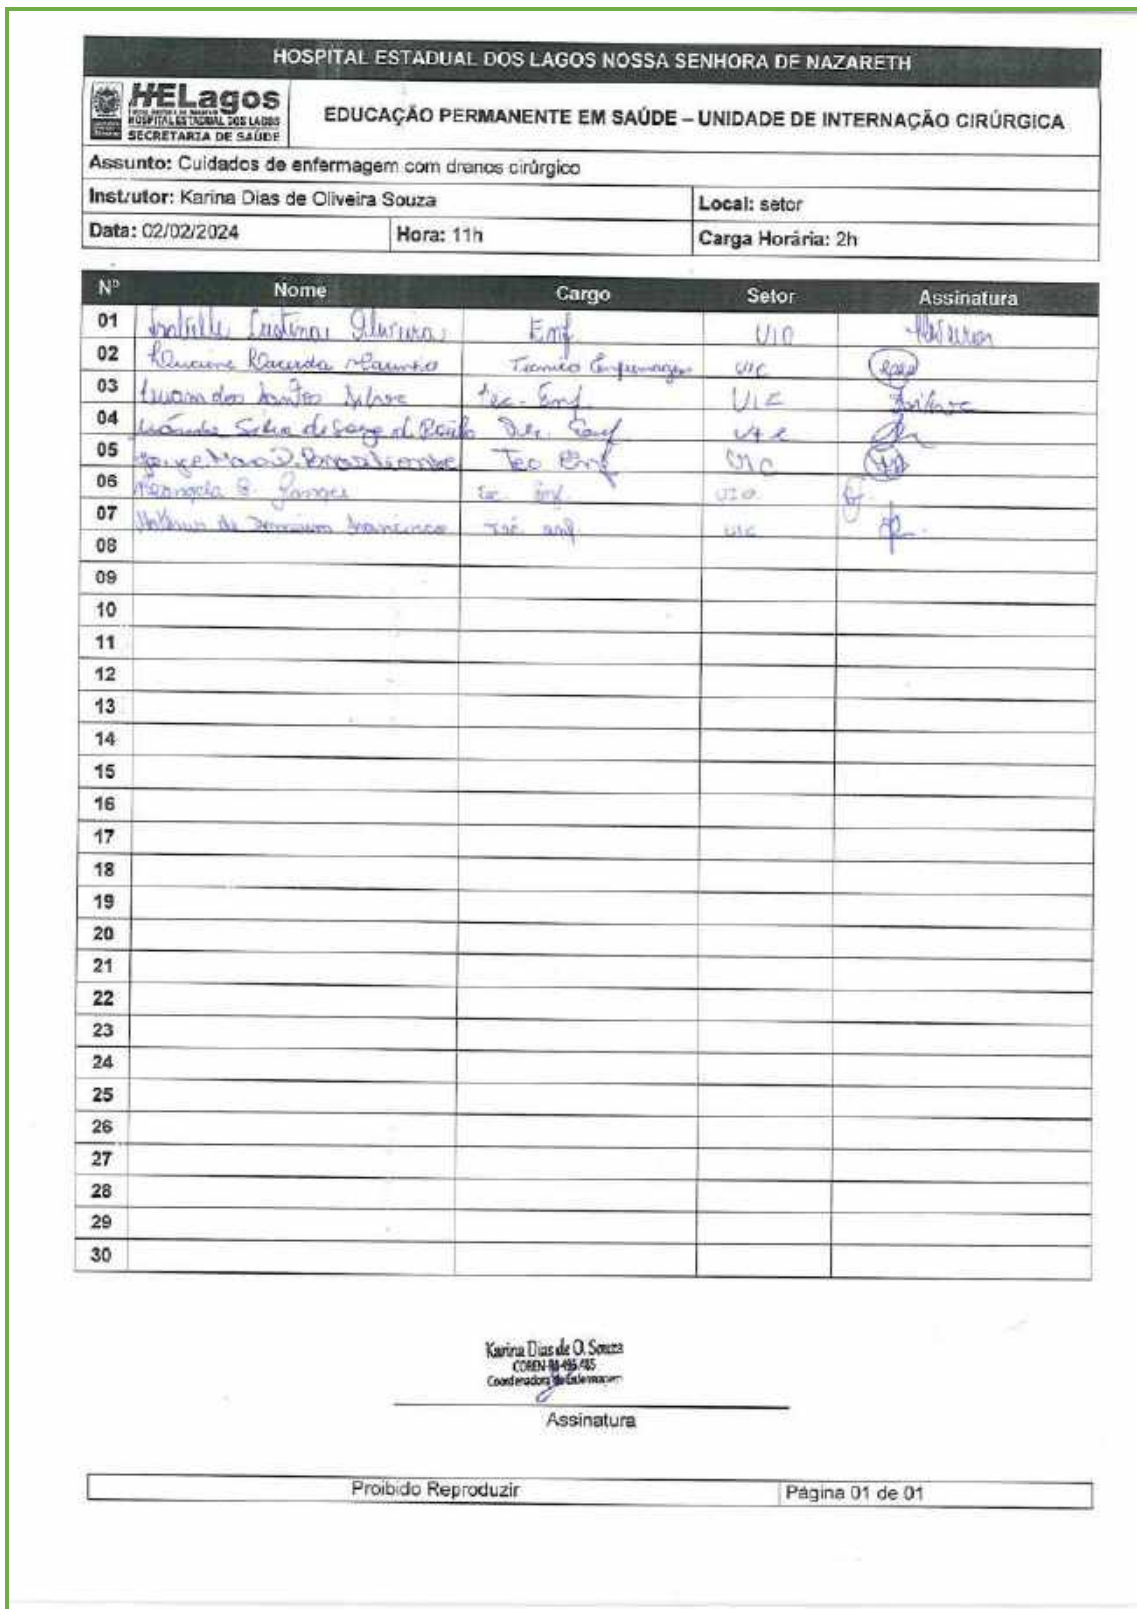 HOSPITAL ESTADUAL DOS LAGOS NOSSA SENHORA DE NAZARETH
HELagos
HOSPITAL ESTADUAL DOS LAGOS
SECRETARIA DE SAÚDE
EDUCAÇÃO PERMANENTE EM SAÚDE – UNIDADE DE INTERNAÇÃO CIRÚRGICA
Assunto: Cuidados de enfermagem com drenos cirúrgico
Instrutor: Karina Dias de Oliveira Souza Local: setor
Data: 02/02/2024 Hora: 11h Carga Horária: 2h
Nº Nome Cargo Setor Assinatura
01 Cristina Oliveira Enf UIC
02 Tecnico Enfermagem UIC
03 Luan dos Santos Silva Tec. Enf. UIC
04 Silva de Enf UIC
05 Tec Enf UIC
06 Tec. Enf. UIC
07 Francisco Téc enf UIC
08
09
10
11
12
13
14
15
16
17
18
19
20
21
22
23
24
25
26
27
28
29
30
Karina Dias de O. Souza
Coordenadora de Enfermagem
Assinatura
Proibido Reproduzir Página 01 de 01